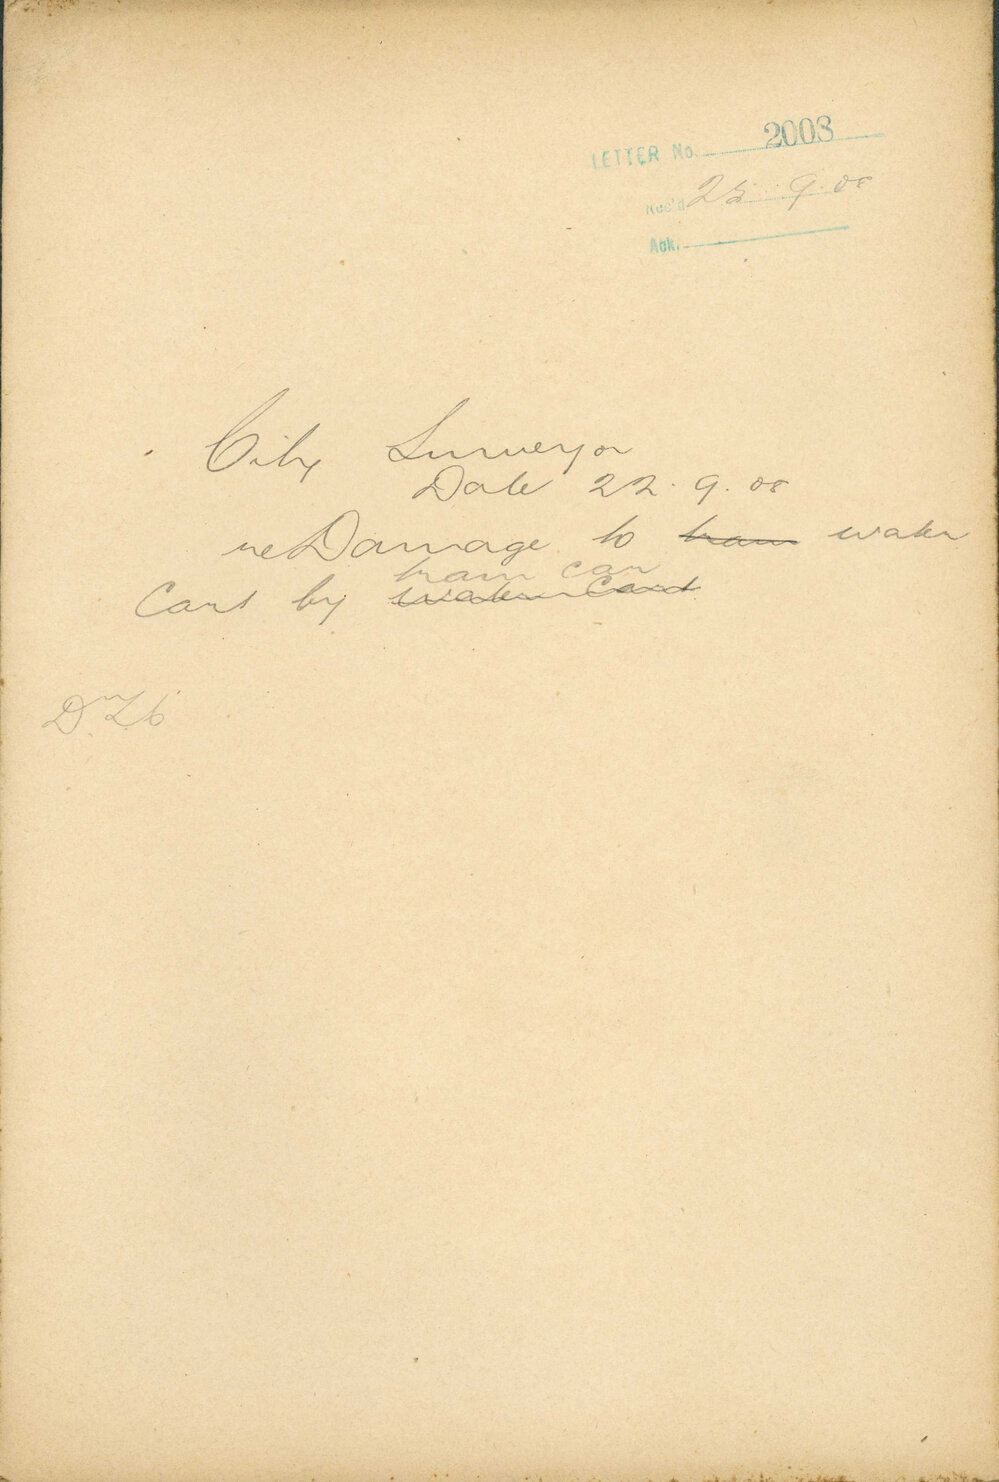 LETTER No. 2003
Rec'd 25.9.08
Ack.
City Surveyor
Date 22.9.08
re Damage to tram water
tram car
Cart by water Cart